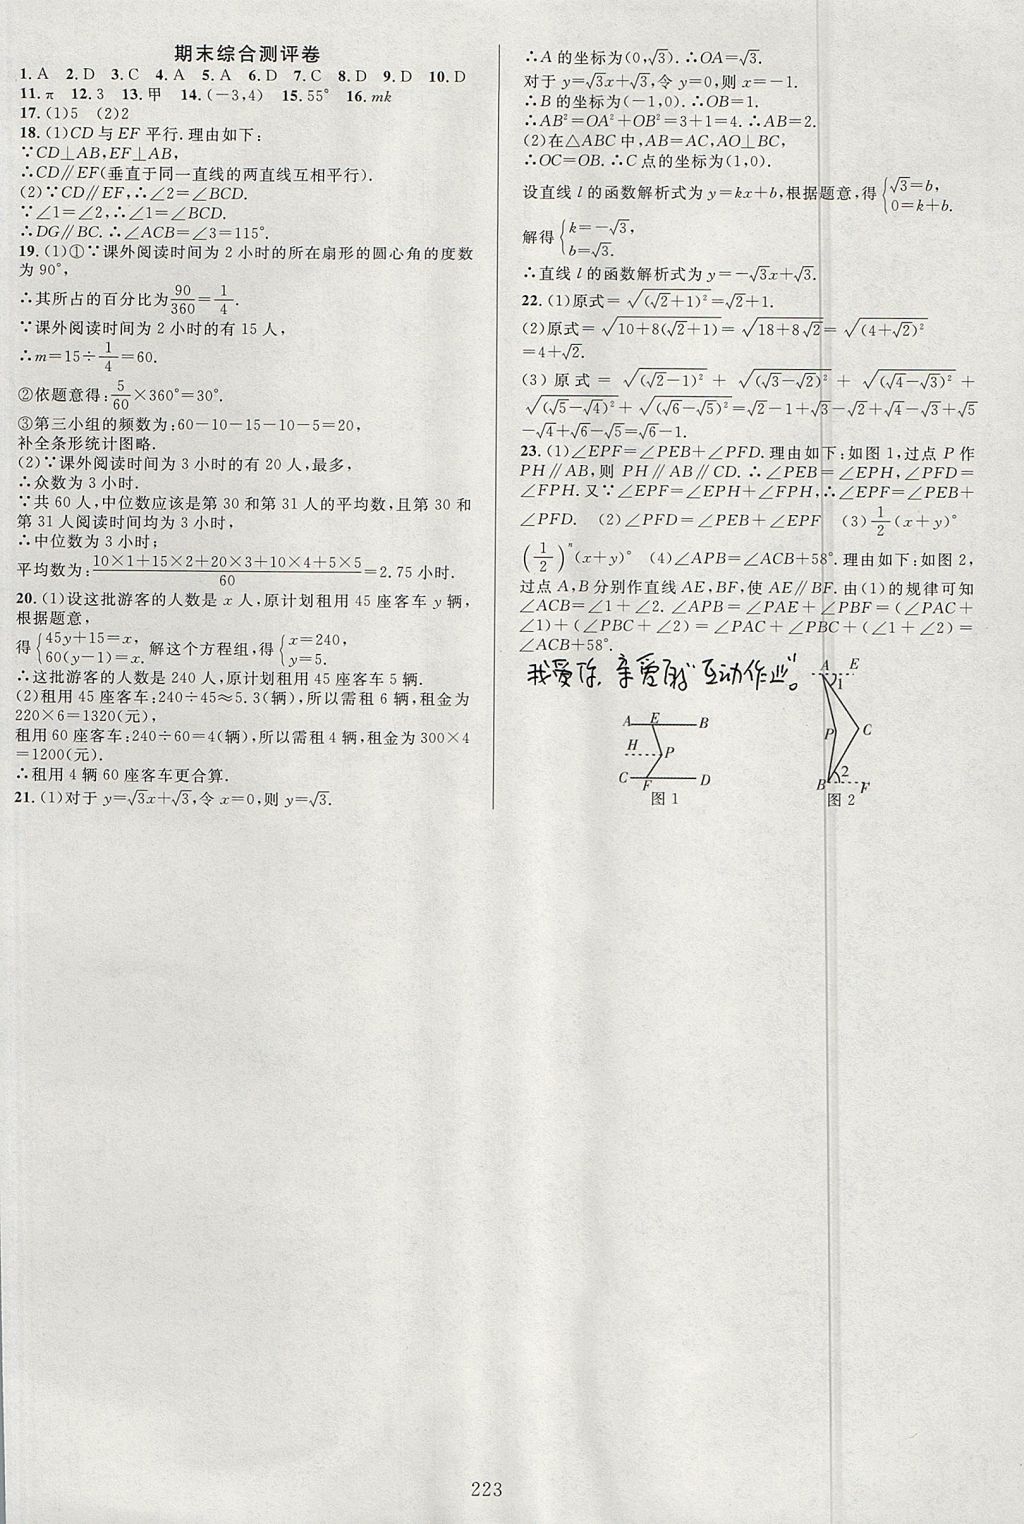 期末综合测评卷
1.A 2.D 3.C 4.A 5.A 6.D 7.C 8.D 9.D 10.D
11.π 12.3 13.甲 14.(-3,4) 15.55° 16.mk
17.(1)5 (2)2
18.(1)CD与EF平行.理由如下:
∵CD⊥AB,EF⊥AB,
∴CD∥EF(垂直于同一直线的两直线互相平行).
(2)∵CD∥EF,∴∠2=∠BCD.
∵∠1=∠2,∴∠1=∠BCD.
∴DG∥BC.∴∠ACB=∠3=115°.
19.(1)①∵课外阅读时间为2小时的所在扇形的圆心角的度数
为90°,
∴其所占的百分比为90/360=1/4.
∵课外阅读时间为2小时的有15人,
∴m=15÷1/4=60.
②依题意得:5/60×360°=30°.
③第三小组的频数为:60-10-15-10-5=20,
补全条形统计图略.
(2)∵课外阅读时间为3小时的有20人,最多,
∴众数为3小时.
∵共60人,中位数应该是第30和第31人的平均数,且第30和
第31人阅读时间均为3小时,
∴中位数为3小时;
平均数为:(10×1+15×2+20×3+10×4+5×5)/60=2.75小时.
20.(1)设这批游客的人数是x人,原计划租用45座客车y辆,
根据题意,
得{45y+15=x, 60(y-1)=x. 解这个方程组,得{x=240, y=5.
∴这批游客的人数是240人,原计划租用45座客车5辆.
(2)租用45座客车:240÷45≈5.3(辆),所以需租6辆,租金为
220×6=1320(元),
租用60座客车:240÷60=4(辆),所以需租4辆,租金为300×4
=1200(元).
∴租用4辆60座客车更合算.
21.(1)对于y=√3x+√3,令x=0,则y=√3.
∴A的坐标为(0,√3).∴OA=√3.
对于y=√3x+√3,令y=0,则x=-1.
∴B的坐标为(-1,0).∴OB=1.
∴AB²=OA²+OB²=3+1=4.∴AB=2.
(2)在△ABC中,AB=AC,AO⊥BC,
∴OC=OB.∴C点的坐标为(1,0).
设直线l的函数解析式为y=kx+b,根据题意,得{√3=b, 0=k+b.
解得{k=-√3, b=√3.
∴直线l的函数解析式为y=-√3x+√3.
22.(1)原式=√((√2+1)²)=√2+1.
(2)原式=√(10+8(√2+1))=√(18+8√2)=√((4+√2)²)
=4+√2.
(3)原式=√((√2-1)²)+√((√3-√2)²)+√((√4-√3)²)+
√((√5-√4)²)+√((√6-√5)²)=√2-1+√3-√2+√4-√3+√5
-√4+√6-√5=√6-1.
23.(1)∠EPF=∠PEB+∠PFD.理由如下:如图1,过点P作
PH∥AB,则PH∥AB∥CD.∴∠PEB=∠EPH,∠PFD=
∠FPH.又∵∠EPF=∠EPH+∠FPH,∴∠EPF=∠PEB+
∠PFD. (2)∠PFD=∠PEB+∠EPF (3)1/2(x+y)°
(1/2)ⁿ(x+y)° (4)∠APB=∠ACB+58°.理由如下:如图2,
过点A,B分别作直线AE,BF,使AE∥BF.由(1)的规律可知
∠ACB=∠1+∠2.∠APB=∠PAE+∠PBF=(∠PAC+
∠1)+(∠PBC+∠2)=∠PAC+∠PBC+(∠1+∠2)=
∠ACB+58°.
我爱你,亲爱的"互动作业"。
A E B
H P
C F D
图1
A E
1
P C
B 2 F
图2
223